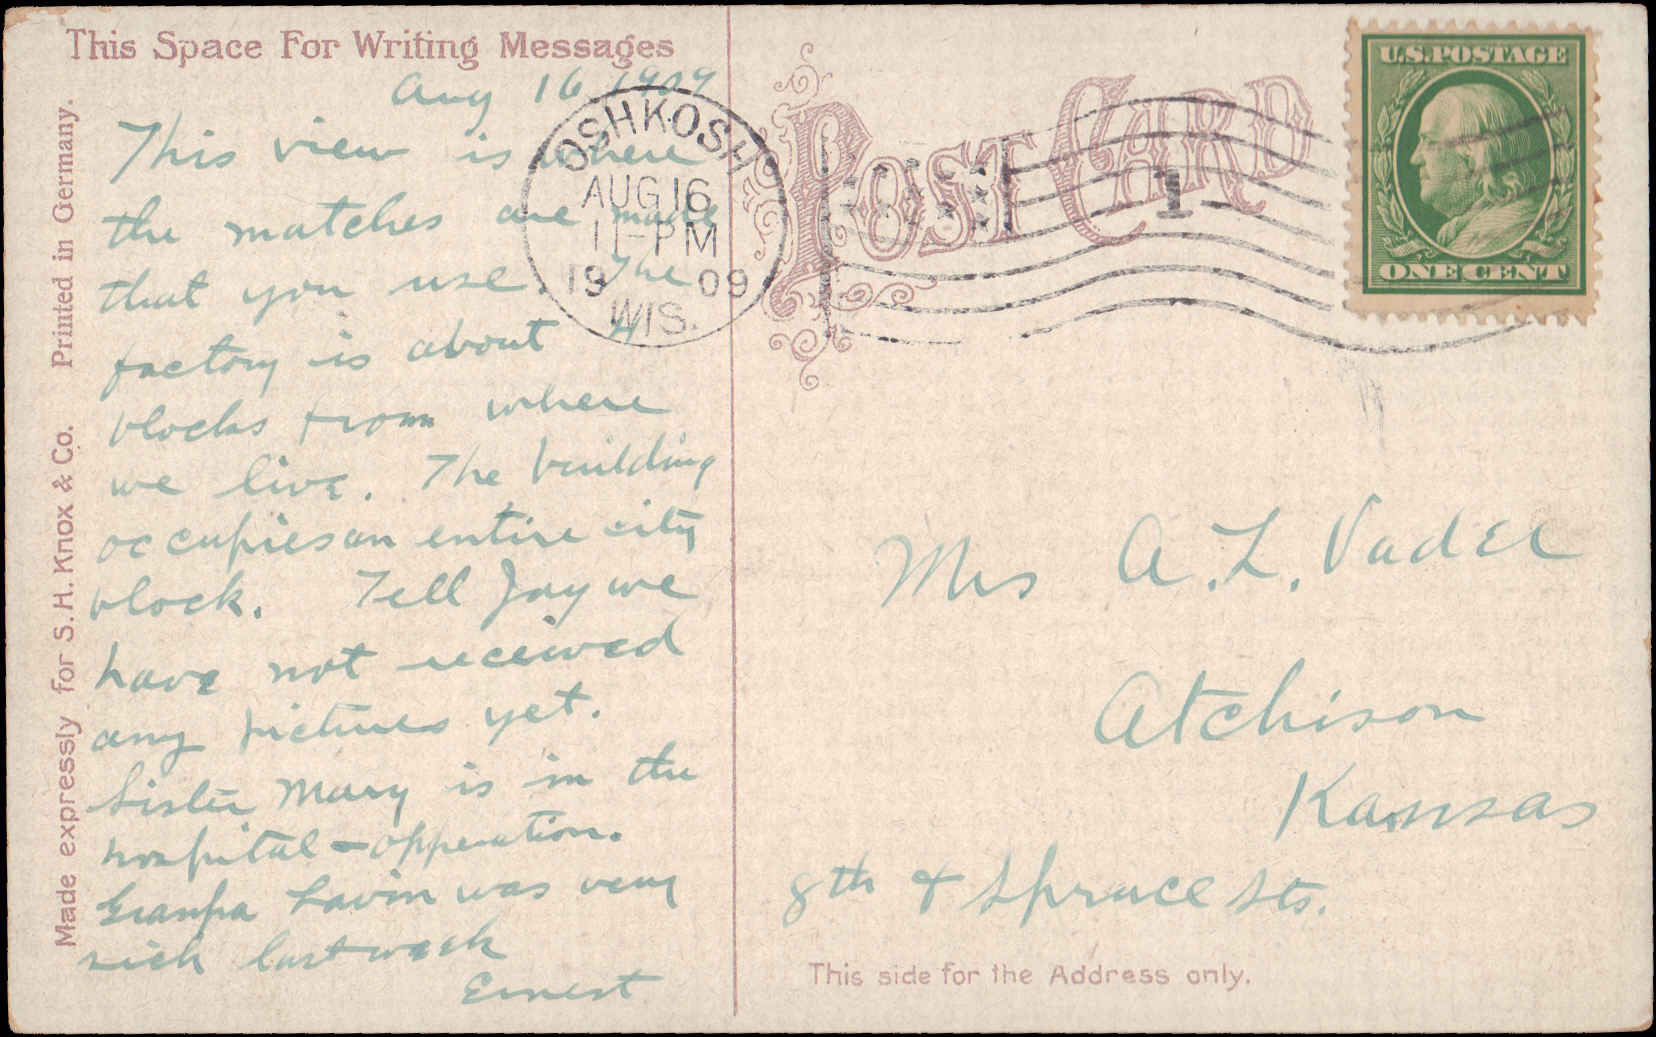 This Space For Writing Messages
Aug 16 1909
This view is where
the matches are made
that you use. The
factory is about 4
blocks from where
we live. The building
occupies an entire city
block. Tell Jay we
have not received
any pictures yet.
Sister Mary is in the
hospital - opperation.
Granpa Lavin was very
sick last week
Ernest
Made expressly for S. H. Knox & Co. Printed in Germany.
OSHKOSH
AUG 16
11-PM
1909
WIS.
POST CARD
1
U.S. POSTAGE
ONE CENT
Mrs A. L. Vader
Atchison
Kansas
8th & Spruce Sts.
This side for the Address only.